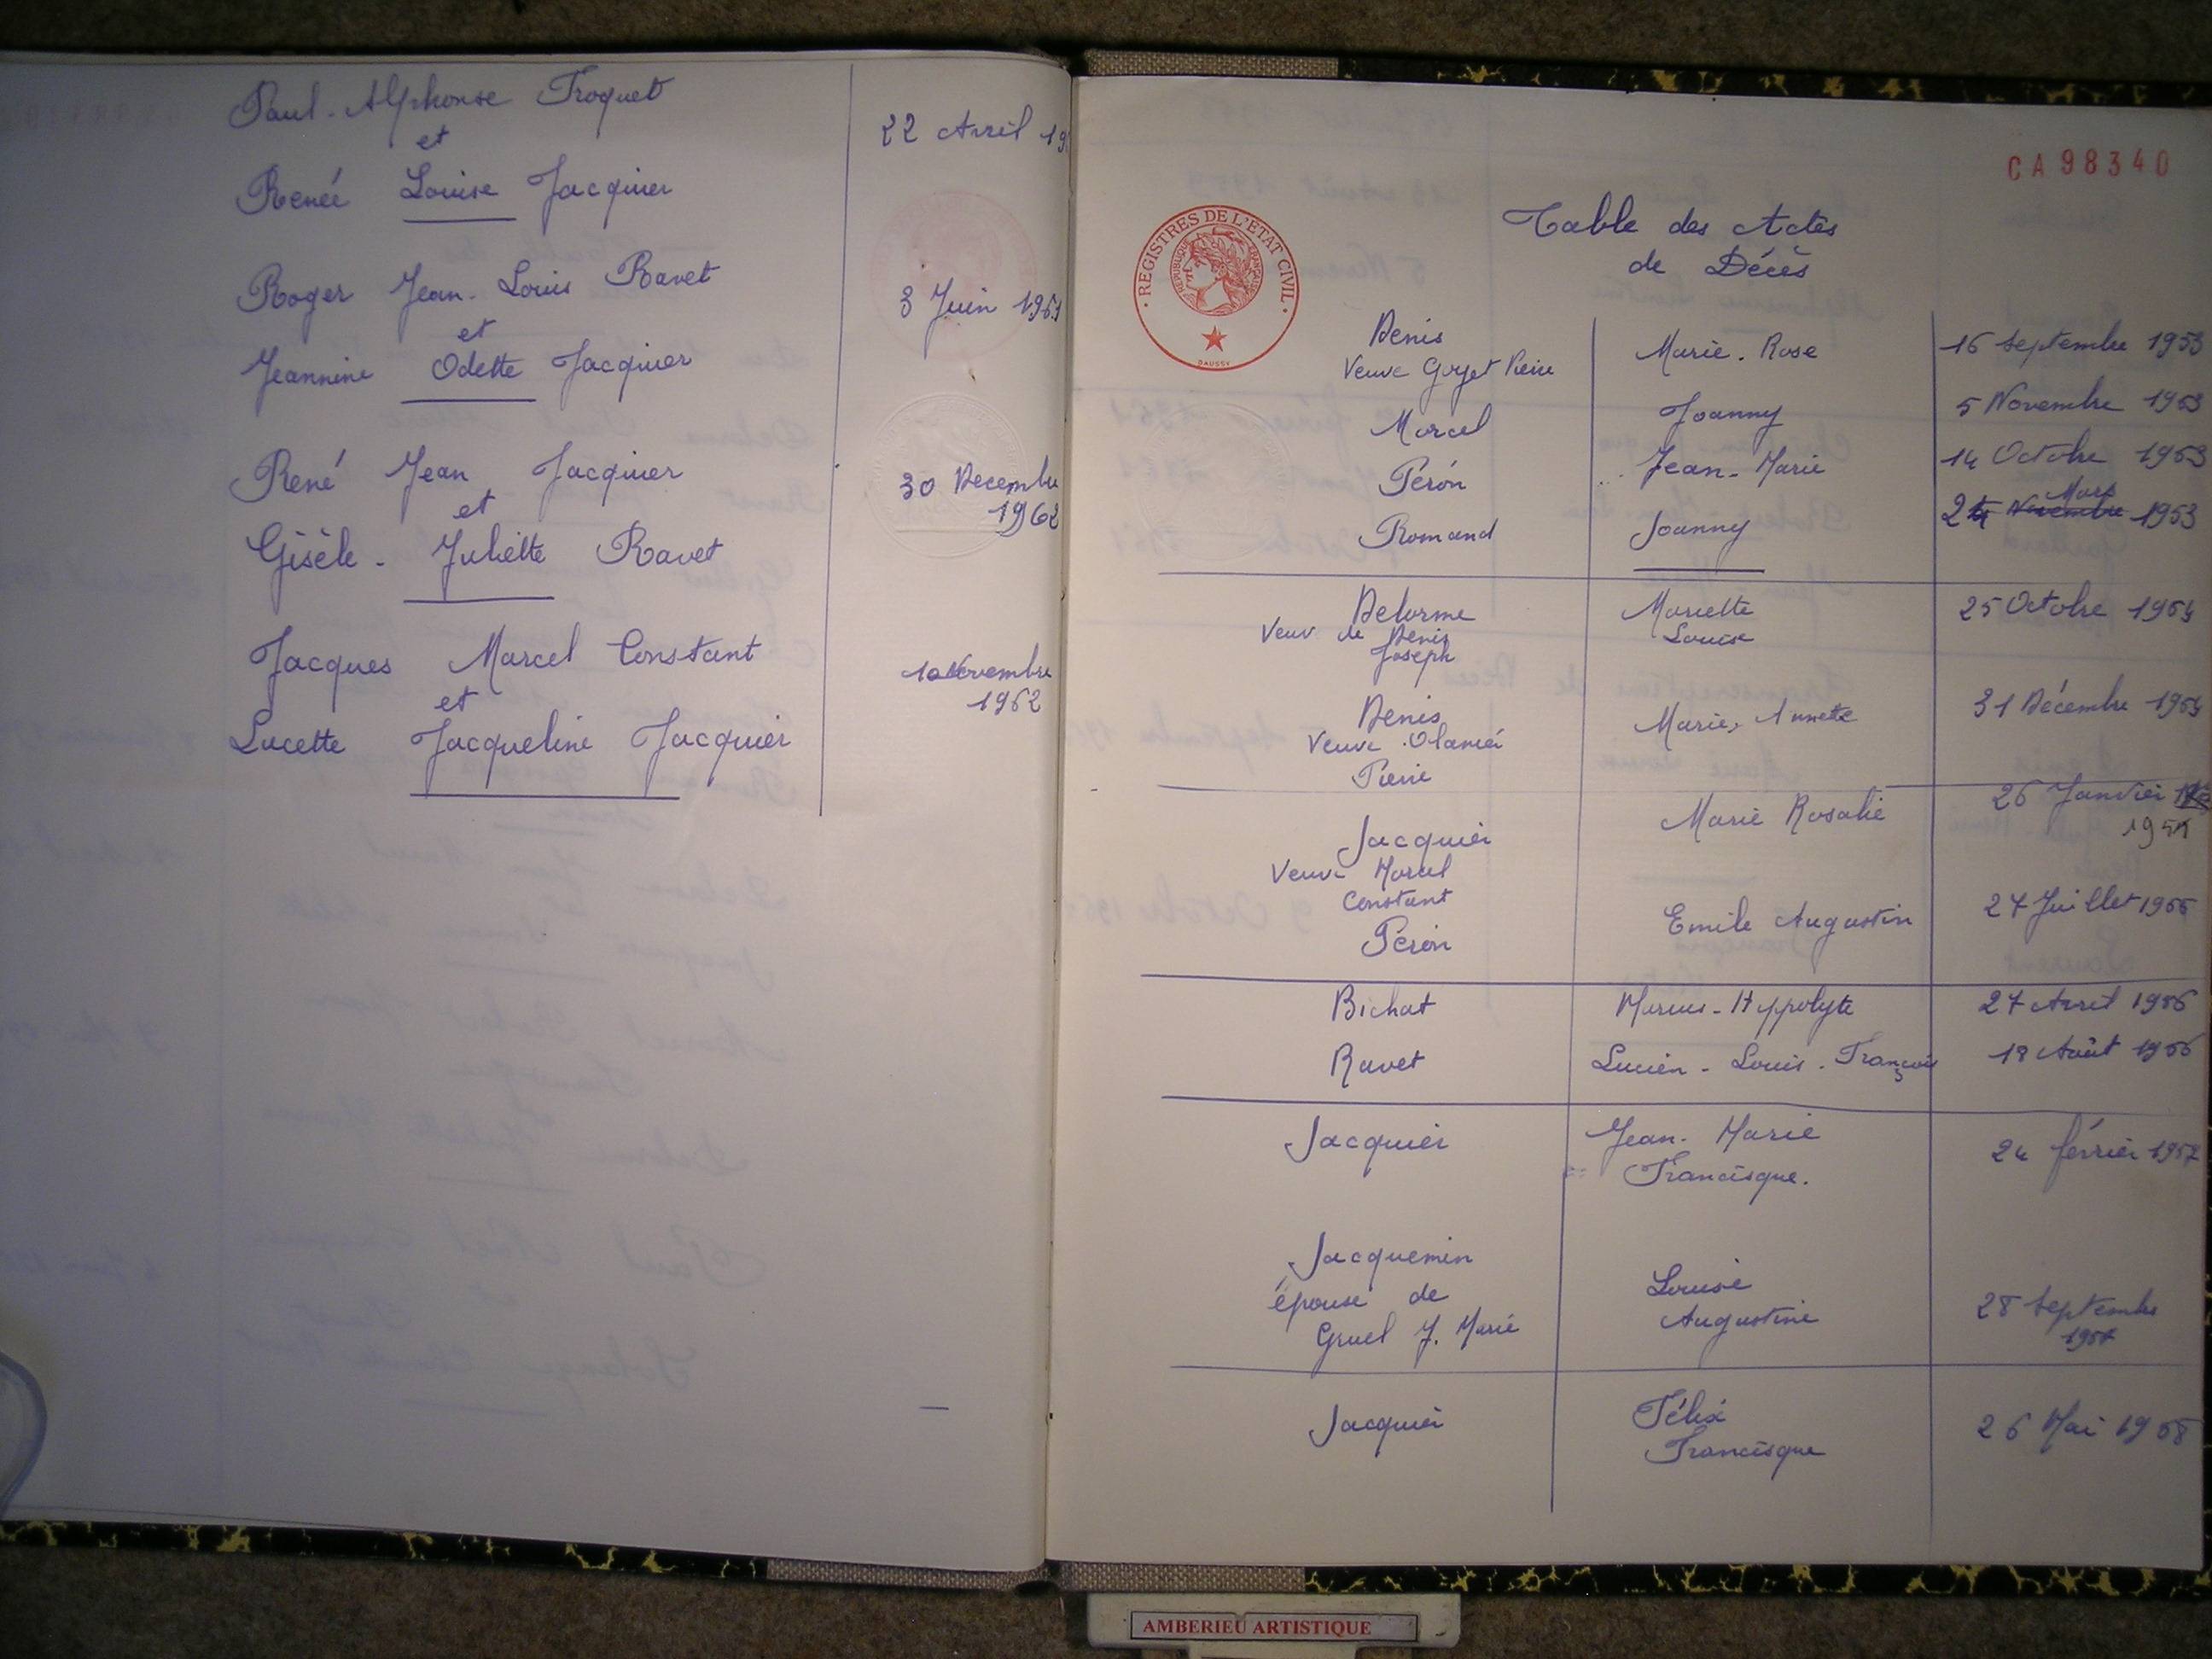 Paul-Alphonse Troquet
et
Renée Louise Jacquier
22 Avril 19
Roger Jean-Louis Ravet
et
Jeannine Odette Jacquier
3 Juin 1961
René Jean Jacquier
et
Gisèle-Juliette Ravet
30 Decembre
1962
Jacques Marcel Constant
et
Lucette Jacqueline Jacquier
10 Novembre
1962
CA98340
REGISTRES DE L'ETAT CIVIL
REPUBLIQUE FRANÇAISE
DAUSSY
Table des Actes
de Décès
Denis Marie-Rose 16 septembre 1953
Veuve Goyet Pierre
Marcel Joanny 5 Novembre 1953
Péron Jean-Marie 14 Octobre 1953
Mars
Romand Joanny 24 Novembre 1953
Delorme Mariette 25 Octobre 1954
Veuv de Denis Louise
Joseph
Denis Marie, Annette 31 Décembre 1954
Veuve
Pierre
Jacquier Marie Rosalie 26 Janvier
1955
Veuve Marcel
Constant
Péron Emile Augustin 27 Juillet 1955
Bichat Marius-Hyppolyte 27 Avril 1956
Ravet Lucien-Louis-François 18 Août 1956
Jacquier Jean-Marie 24 février 1957
Francisque.
Jacquemin
épouse de Louise
Gruel J. Marie Augustine 28 septembre
1957
Jacquier Félix 26 Mai 1958
Francisque
AMBERIEU ARTISTIQUE